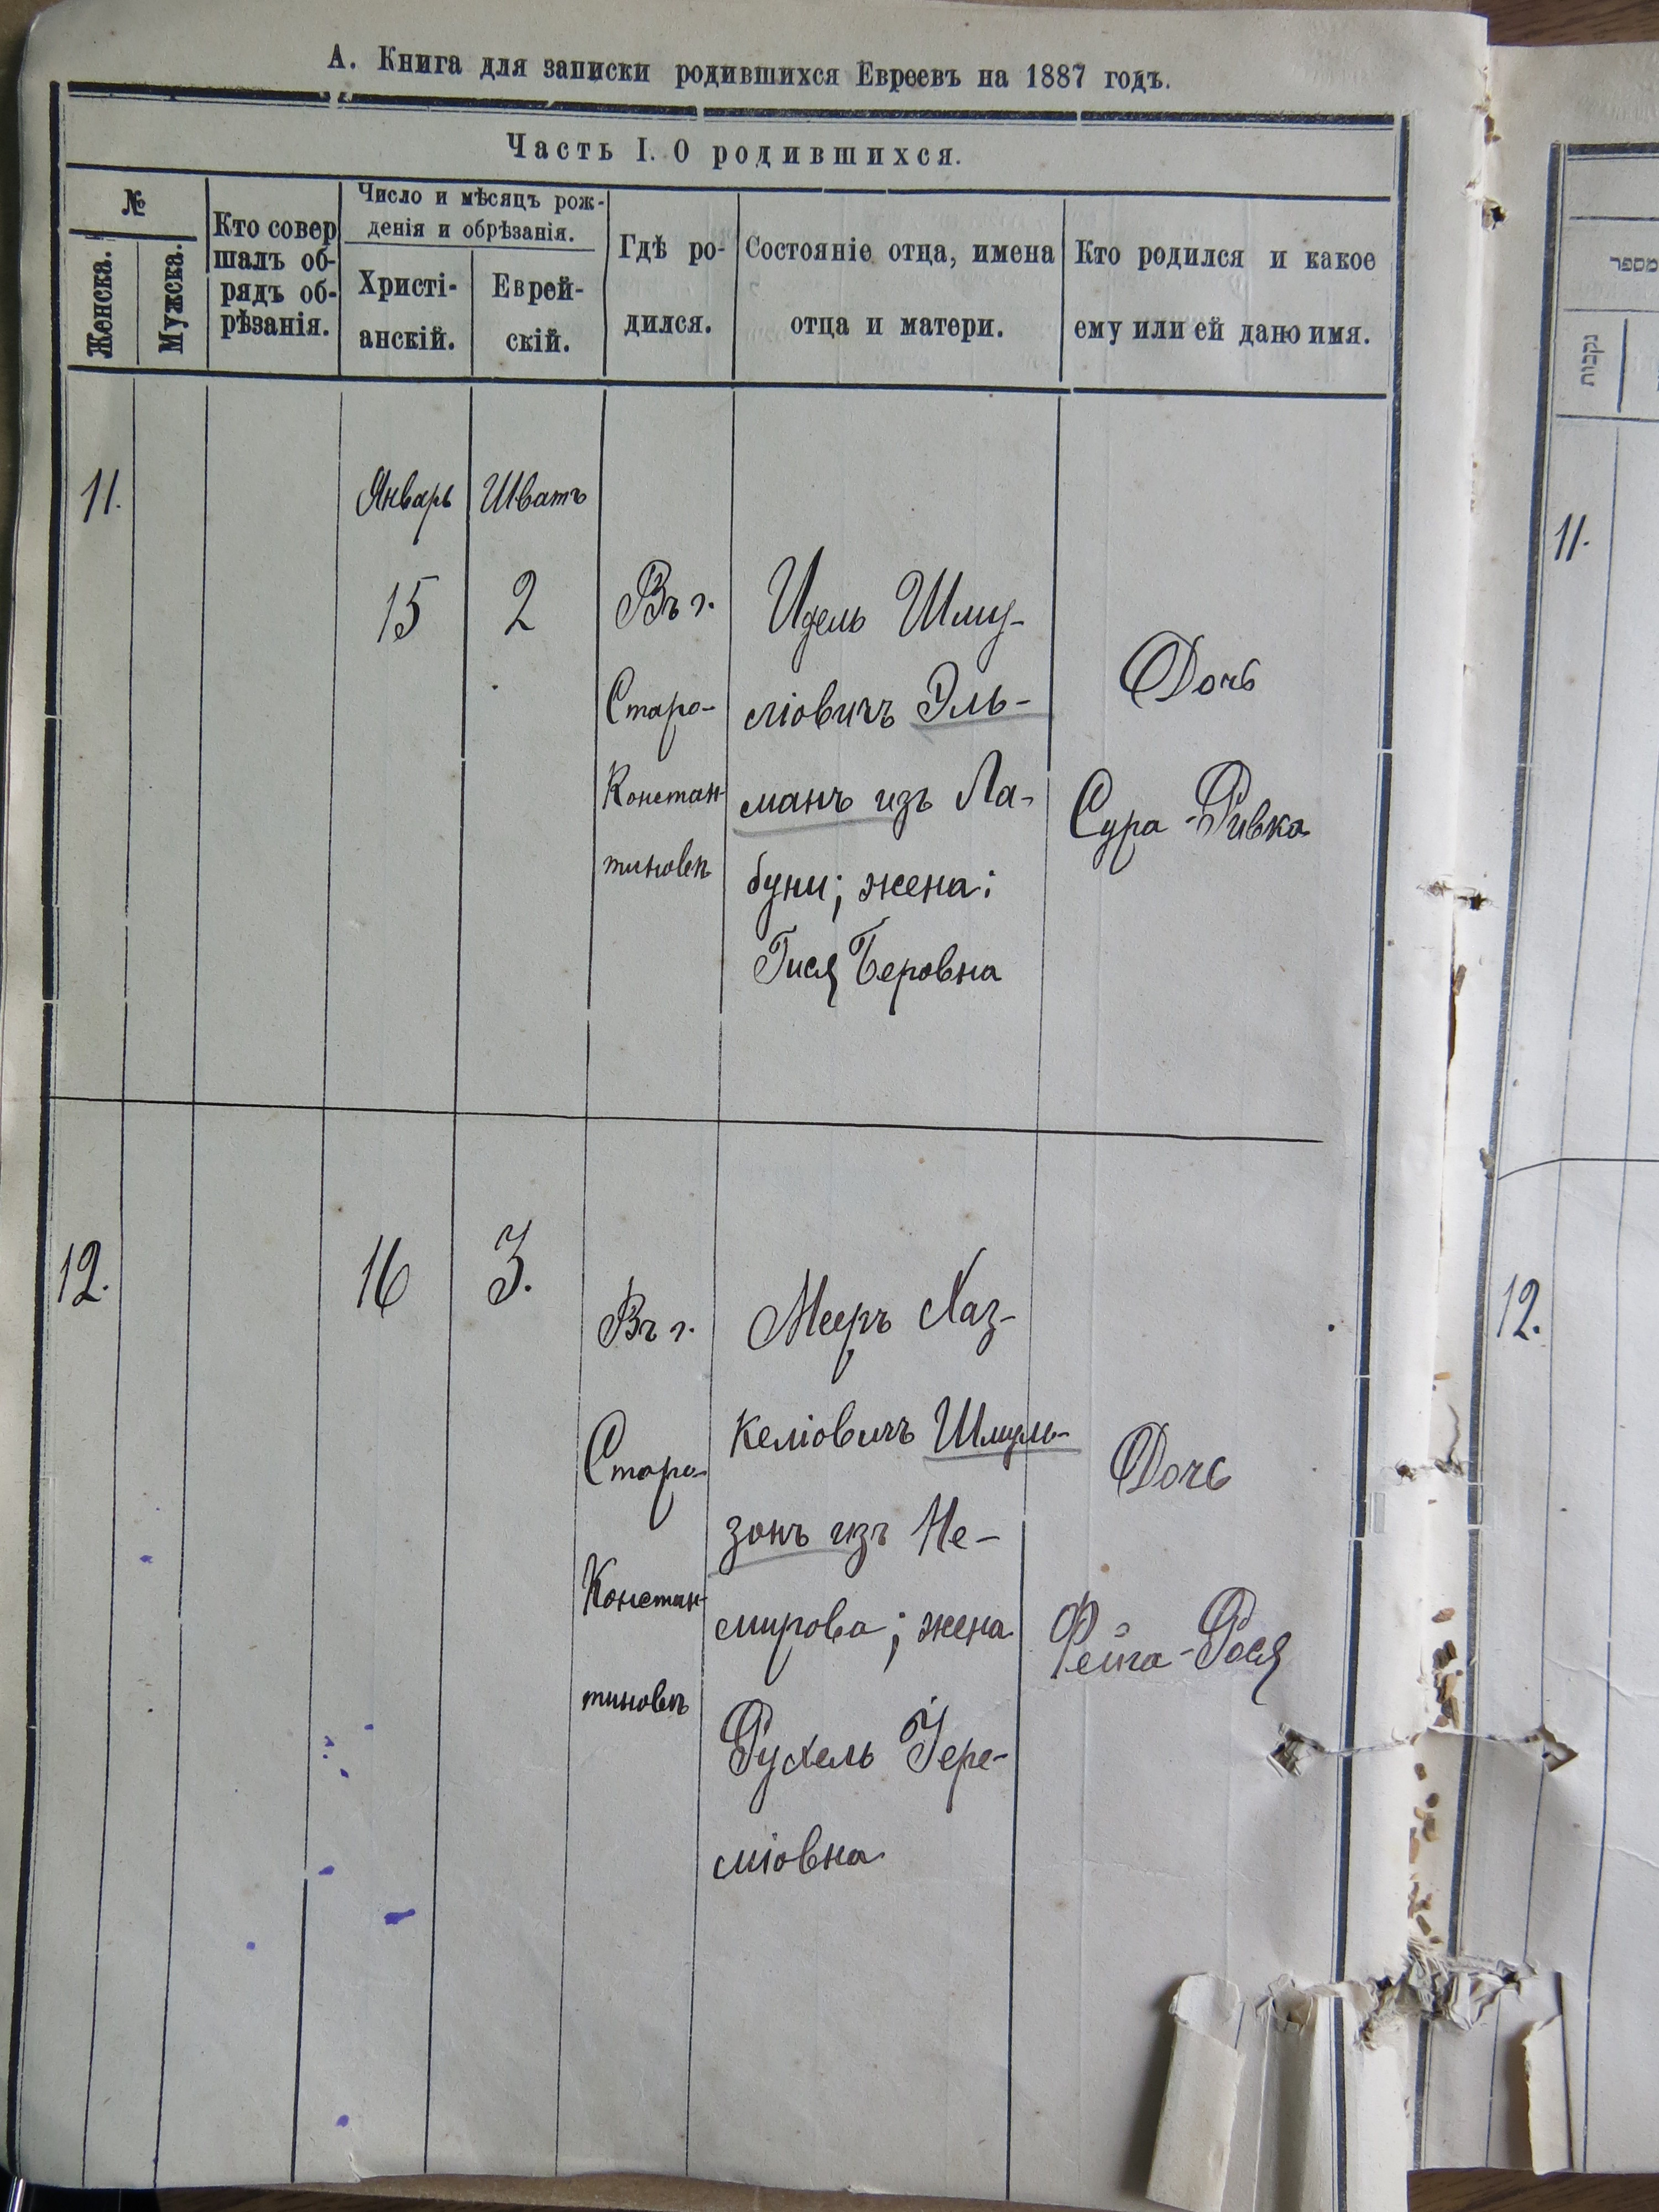 А. Книга для записки родившихся Евреевъ на 1887 годъ.
Часть I. О родившихся.
№
Женска.
Мужска.
Кто совер
шалъ об-
рядъ об-
рѣзанія.
Число и мѣсяцъ рож-
денія и обрѣзанія.
Христі-
анскій.
Еврей-
скій.
Гдѣ ро-
дился.
Состояніе отца, имена
отца и матери.
Кто родился и какое
ему или ей дано имя.
11.
Январь
15
Шватъ
2
Въ г.
Старо-
Констан-
тиновѣ
Идель Шму-
ліовичъ Эль-
манъ изъ Ла-
буни; жена:
Гися Беровна
Дочь
Сура-Ривка
12.
16
3.
Въ г.
Старо-
Констан-
тиновѣ
Мееръ Хаз-
келіовичъ Шмуль-
зонъ изъ Не-
мирова; жена
Рухель Іере-
міовна
Дочь
Фейга-Рося
מספר
נקבות
11.
12.